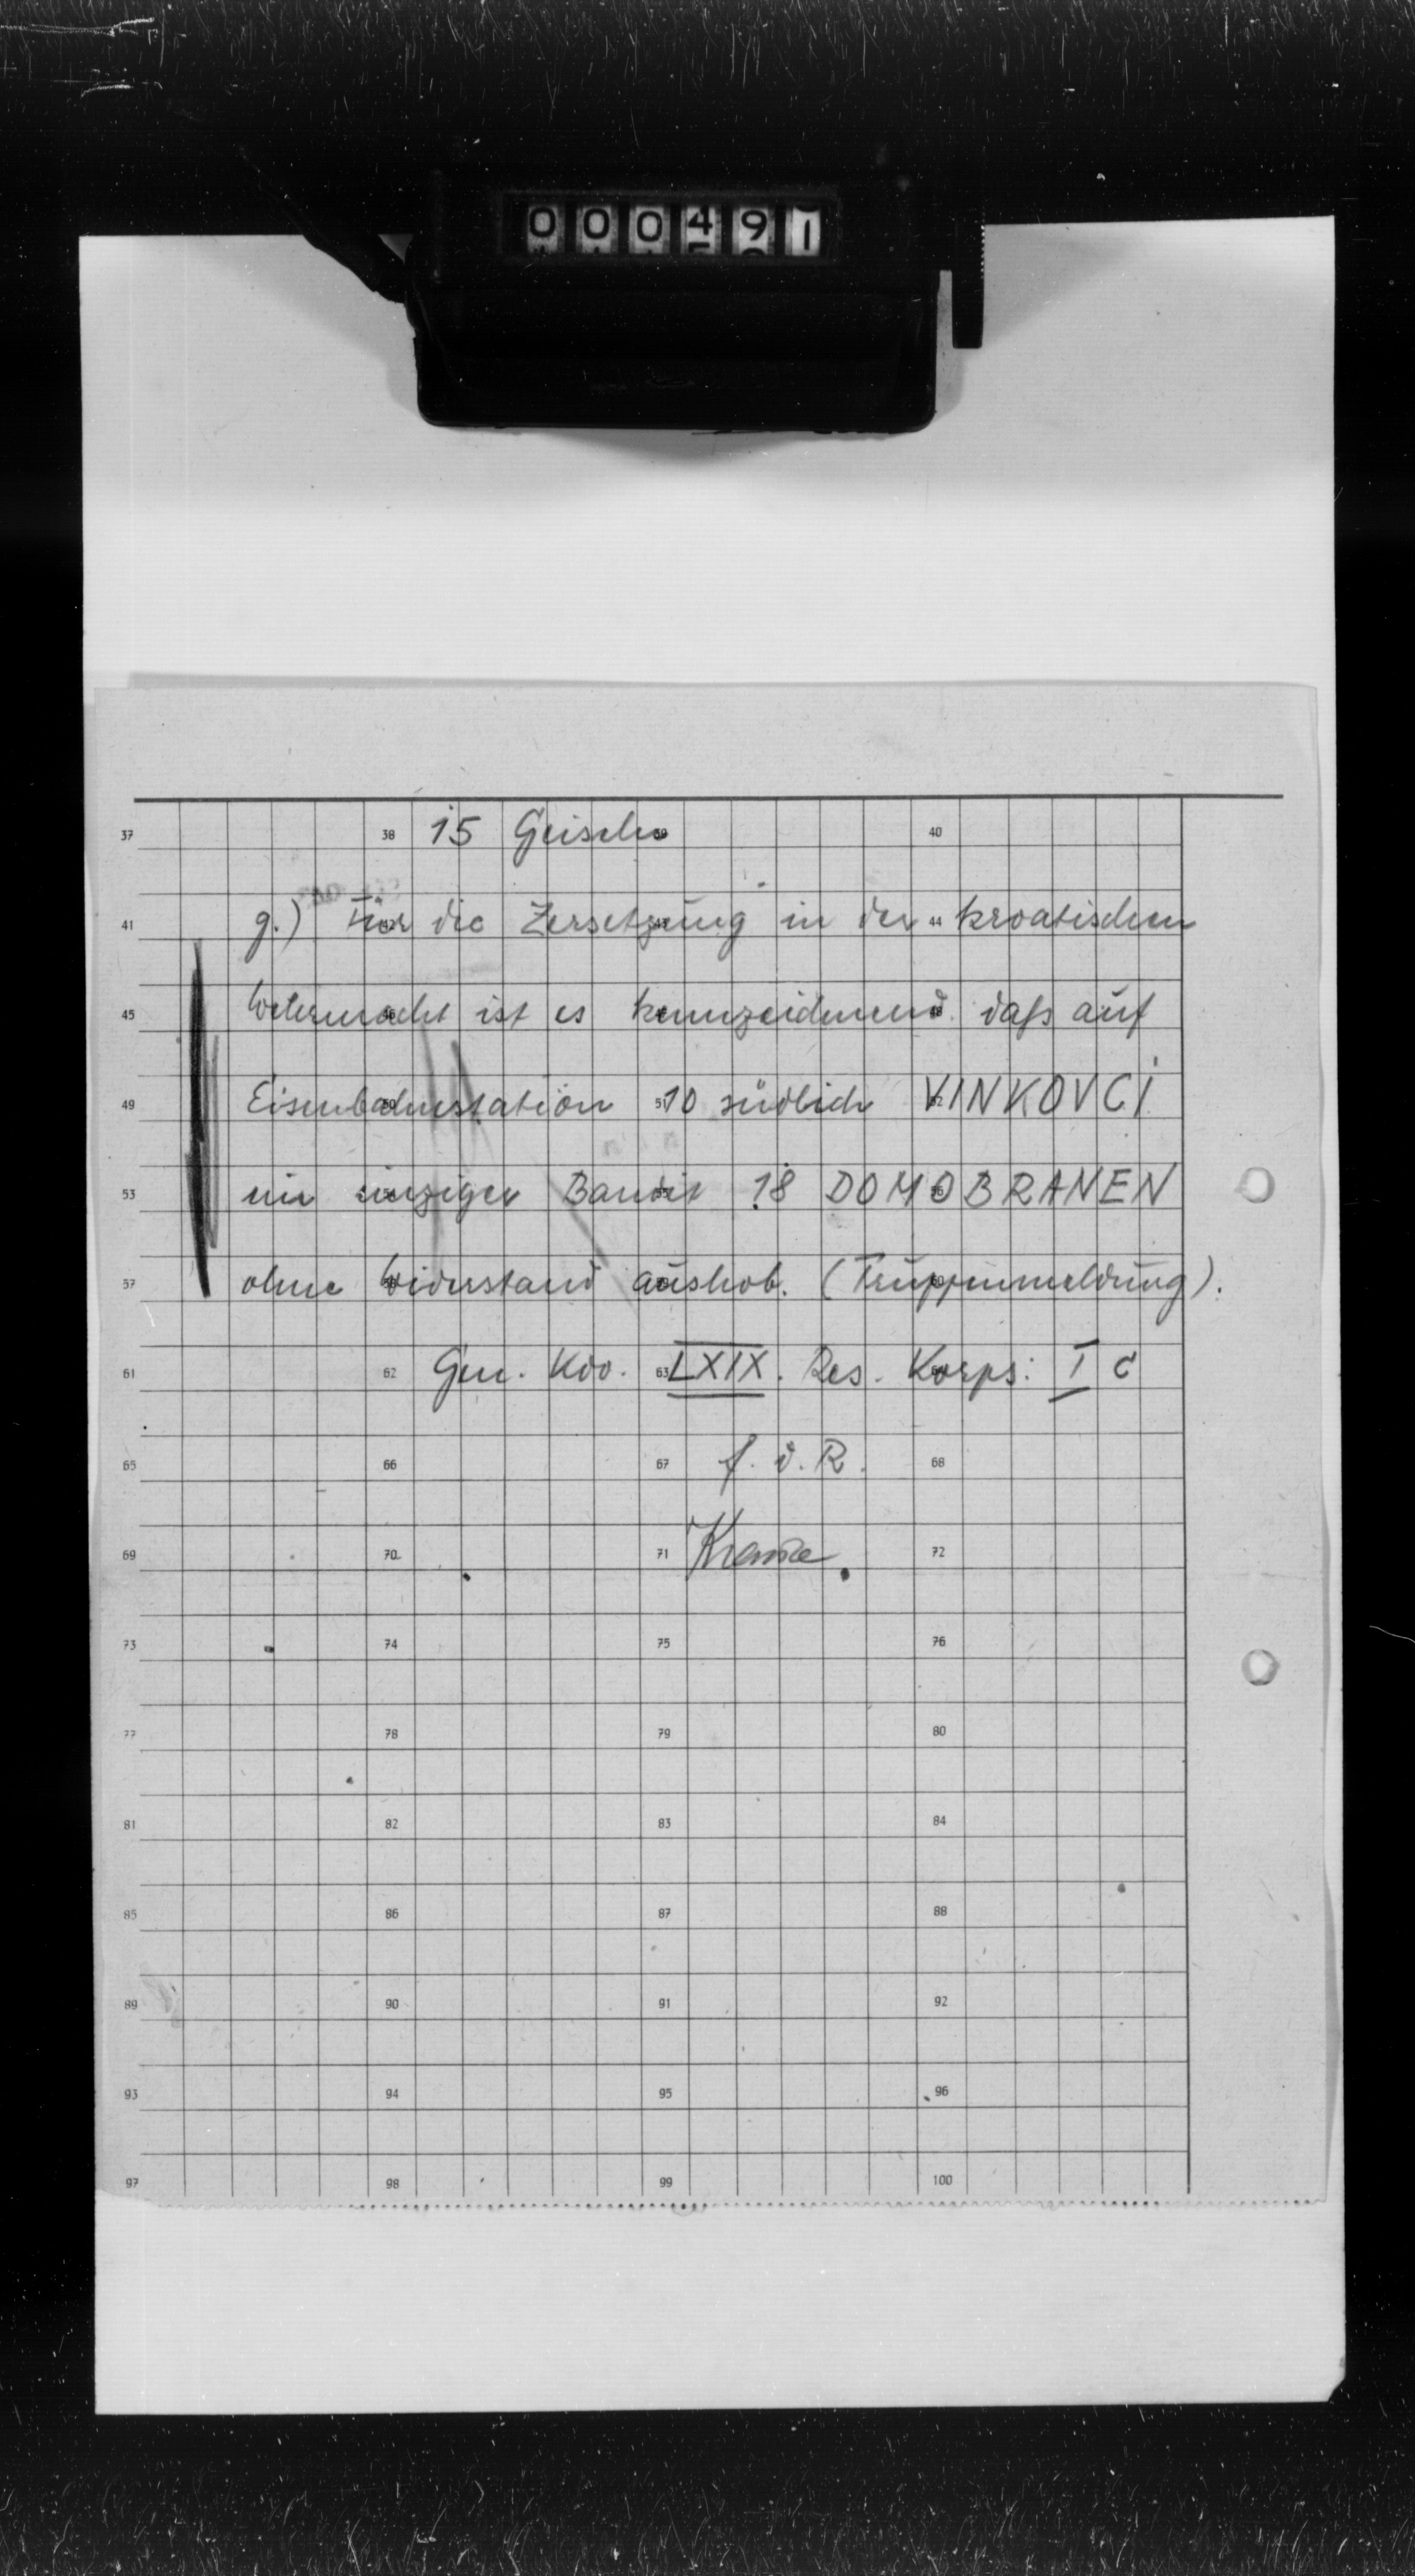 000491
37 38 15 Geiseln 39 40
41 g.) Für die Zersetzung in der 44 kroatischen
45 Wehrmacht ist es kennzeichnend daß auf
49 Eisenbahnstation 51 10 südlich VINKOVCI
53 ein einziger Bandit 18 DOMOBRANEN
57 ohne Widerstand aushob. (Truppenmeldung).
61 62 Gen. Kdo. 63 LXIX. Res. Korps: I c
65 66 67 f. d. R. 68
69 70 71 72
73 74 75 76
77 78 79 80
81 82 83 84
85 86 87 88
89 90 91 92
93 94 95 96
97 98 99 100